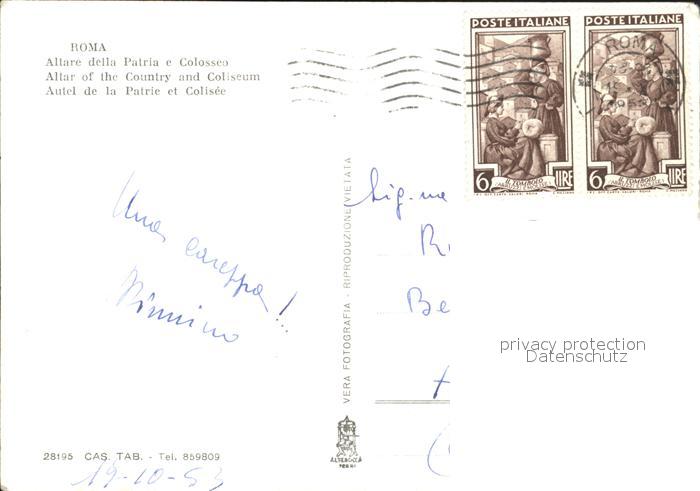 ROMA
Altare della Patria e Colosseo
Altar of the Country and Coliseum
Autel de la Patrie et Colisée
POSTE ITALIANE
POSTE ITALIANE
ROMA
6 IL TOMBOLO LIRE
6 IL TOMBOLO LIRE
Una carezza!
VERA FOTOGRAFIA - RIPRODUZIONE VIETATA
Sig.na
R
Be
privacy protection
Datenschutz
28195 CAS. TAB. - Tel. 859809
19-10-53